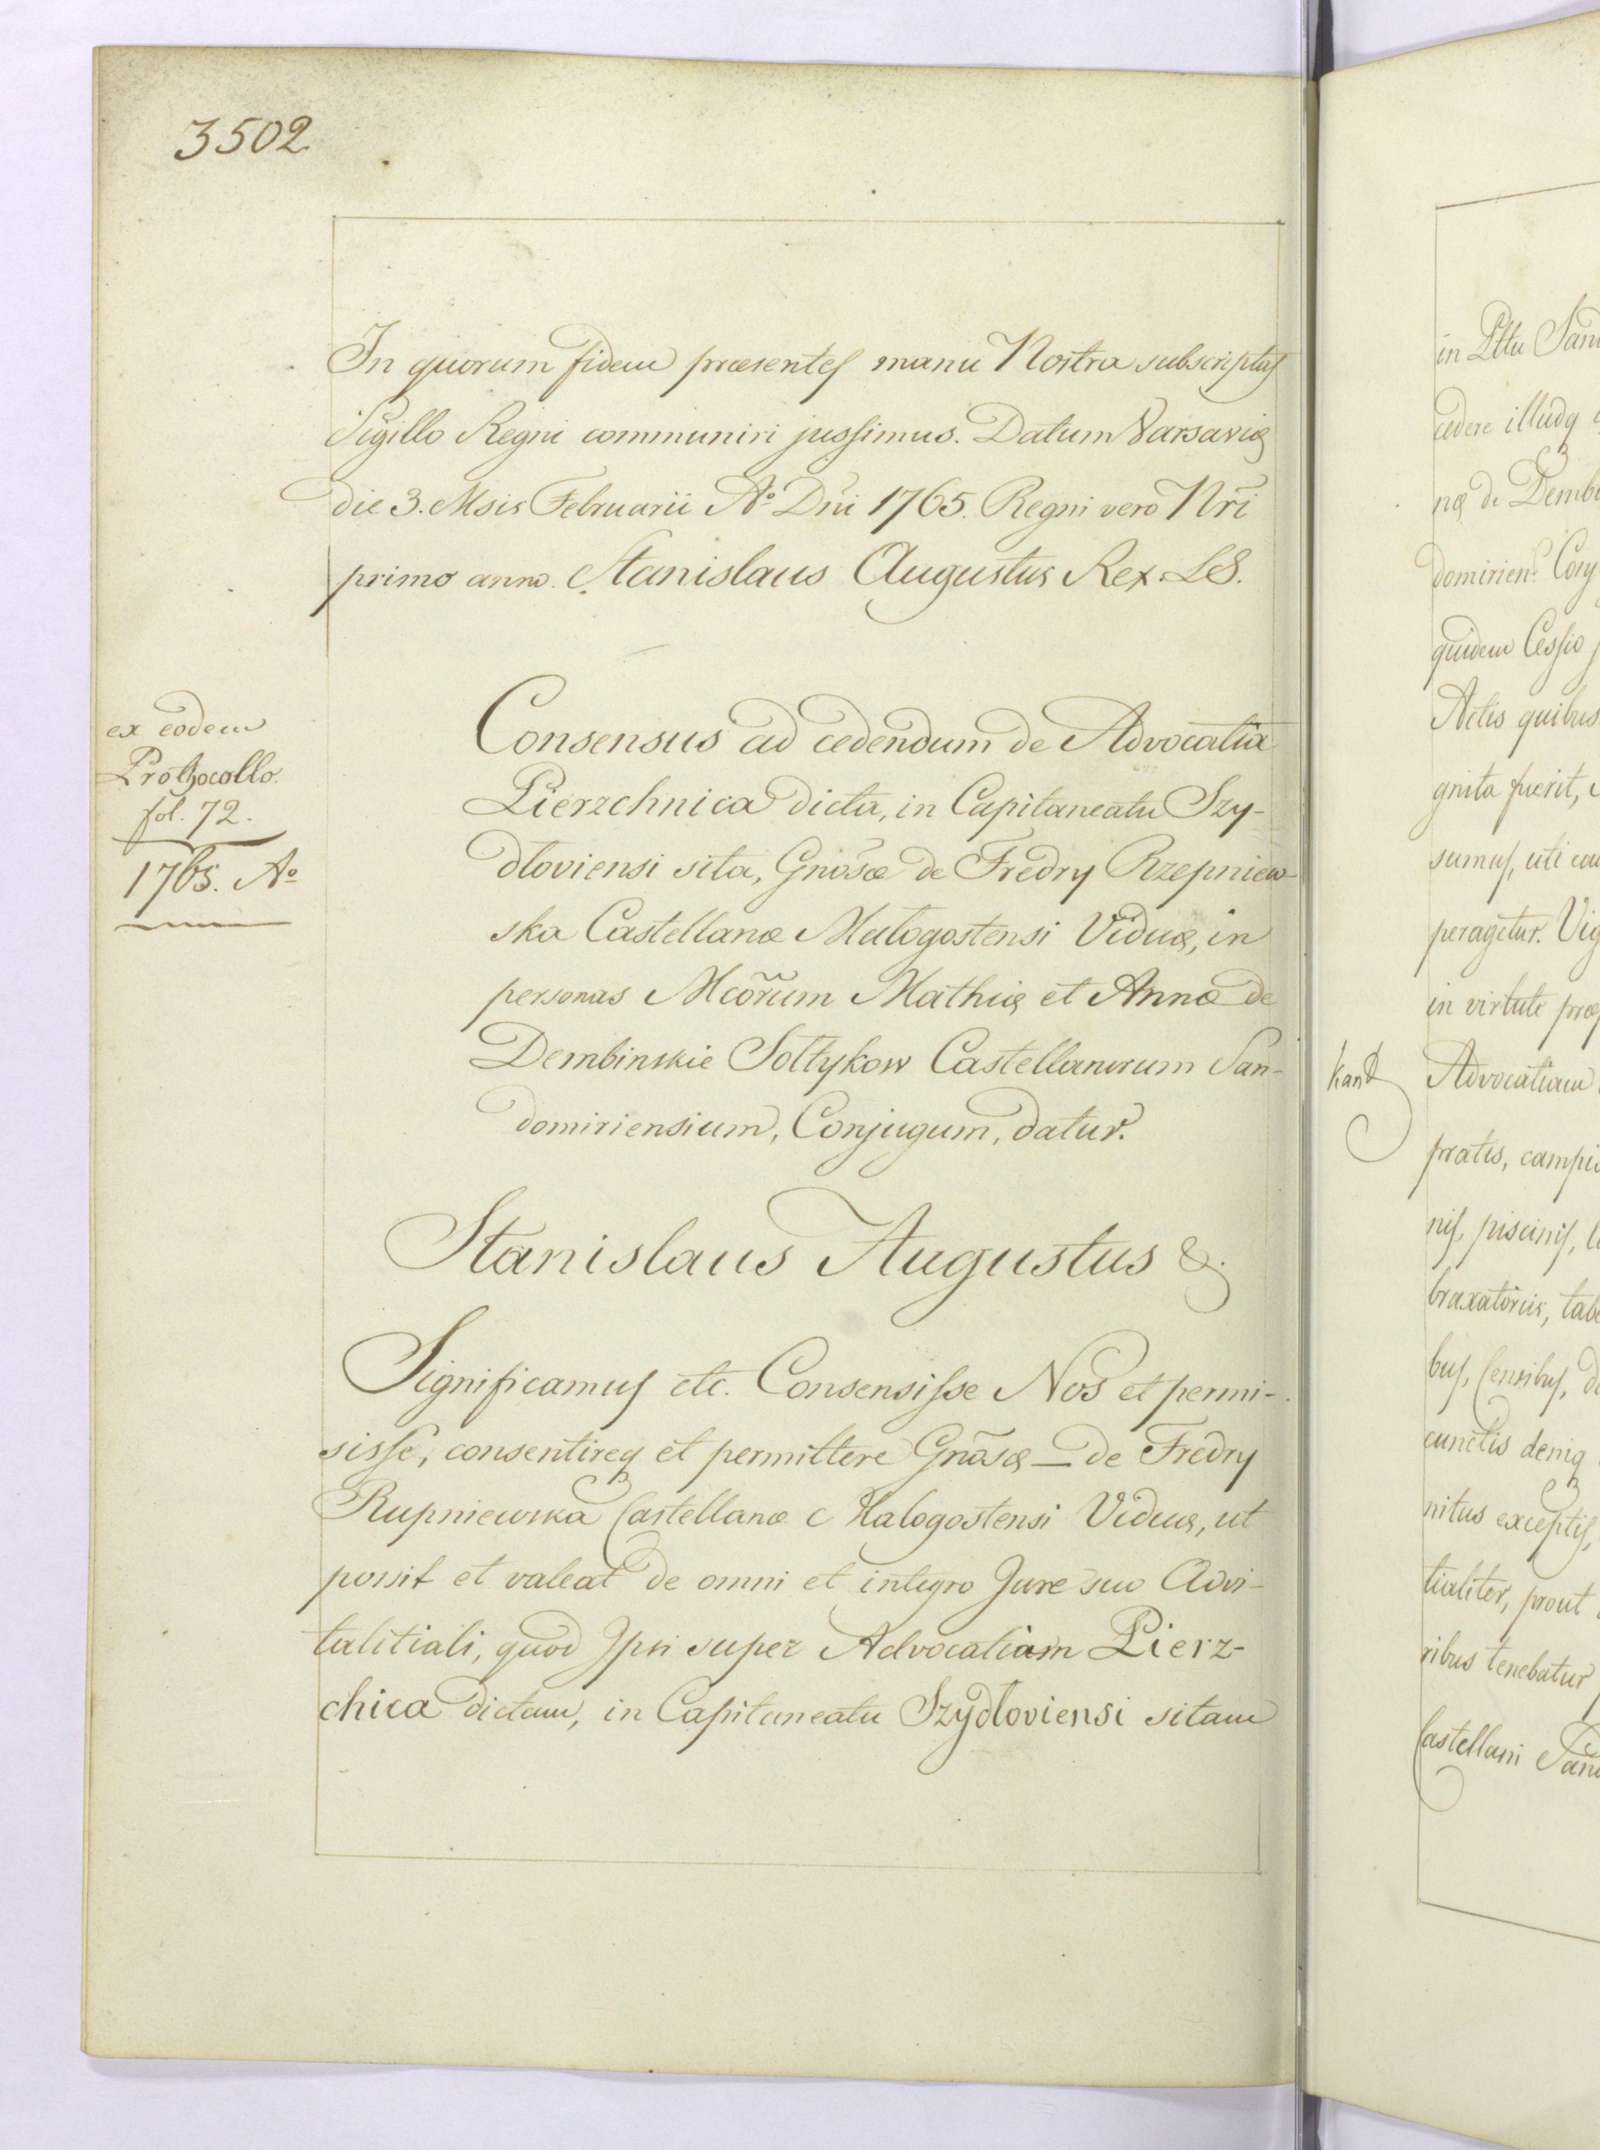 3502
In quorum fidem præsentes manu Nostra subscriptas
Sigillo Regni communiri jussimus. Datum Varsaviæ
die 3. Msis Februarii Aº Dni 1765. Regni vero Nri
primo anno. Stanislaus Augustus Rex. LS.
ex eodem
Prothocollo.
fol. 72.
1765. Aº
Consensus ad cedendum de Advocatia
Pierzchnica dicta, in Capitaneatu Szy-
dloviensi sita, Gnosæ de Fredry Rzepniew-
ska Castellanæ Malogostensi Viduæ, in
personas Mcorum Mathiæ et Annæ de
Dembinskie Sołtykow Castellanorum San-
domiriensium, Conjugum, datur.
Stanislaus Augustus &.
Significamus etc. Consensisse Nos et permi-
sisse, consentireq et permittere Gnosæ — de Fredry
Rupniewska Castellanæ Malogostensi Viduæ, ut
possit et valeat de omni et integro Jure suo Advi-
talitiali, quod Ipsi super Advocatiam Pierz-
chica dictam, in Capitaneatu Szydloviensi sitam
in Pttu San
cedere illudq
næ de Demb
domirien. Conj
quidem Cessio
Actis quibus
gnita fuerit,
sumus, uti
peragetur. Vig
in virtute
Advocatiam
pratis, campi
nis, piscinis,
braxatoriis, tab
bus, Censibus,
cunctis deniq
nitus exceptis,
tialiter, prout
ribus tenebatur
Castellani San